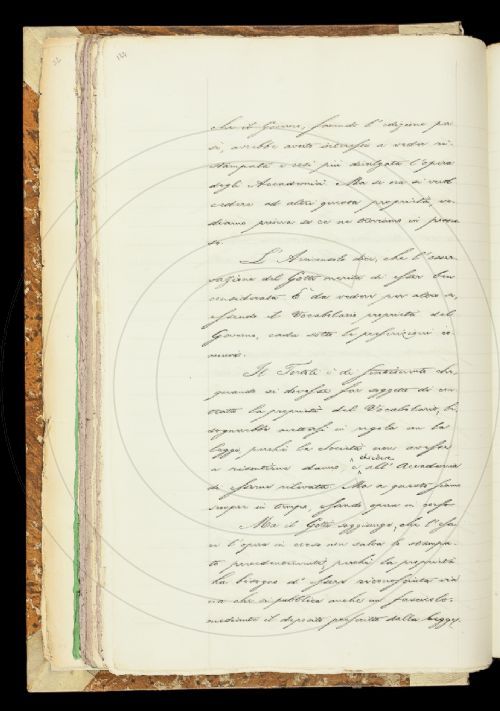 144
che il Governo, facendo l'edizione per
sé, avrebbe avuto interesse a veder ri-
stampata e resa più divulgata l'opera
degli Accademici. Ma se ora si vuol
cedere ad altri questa proprietà, ve-
diamo prima se ce ne troviamo in posses
so.
L'Arcangeli dice, che l'osser-
vazione del Gotti merita di esser ben
considerata. È da vedere per altro se,
essendo il Vocabolario proprietà del
Governo, cada sotto le prescrizioni co-
muni.
Il Tortoli è di sentimento che,
quando si dovesse far soggetto di con
tratto la proprietà del Vocabolario, bi
sognerebbe mettersi in regola con la
legge, perché la Società non avesse
a risentirne danno, e chiedere all'Accademia
di esserne rilevata. Ma a questo siamo
sempre in tempo, essendo opera in corso.
Ma il Gotti soggiunge, che l'esse
re l'opera in corso non salva lo stampa-
to precedentemente, perché la proprietà
ha bisogno d'essere riconosciuta via
via che si pubblica anche un fascicolo,
mediante il deposito prescritto dalla legge.